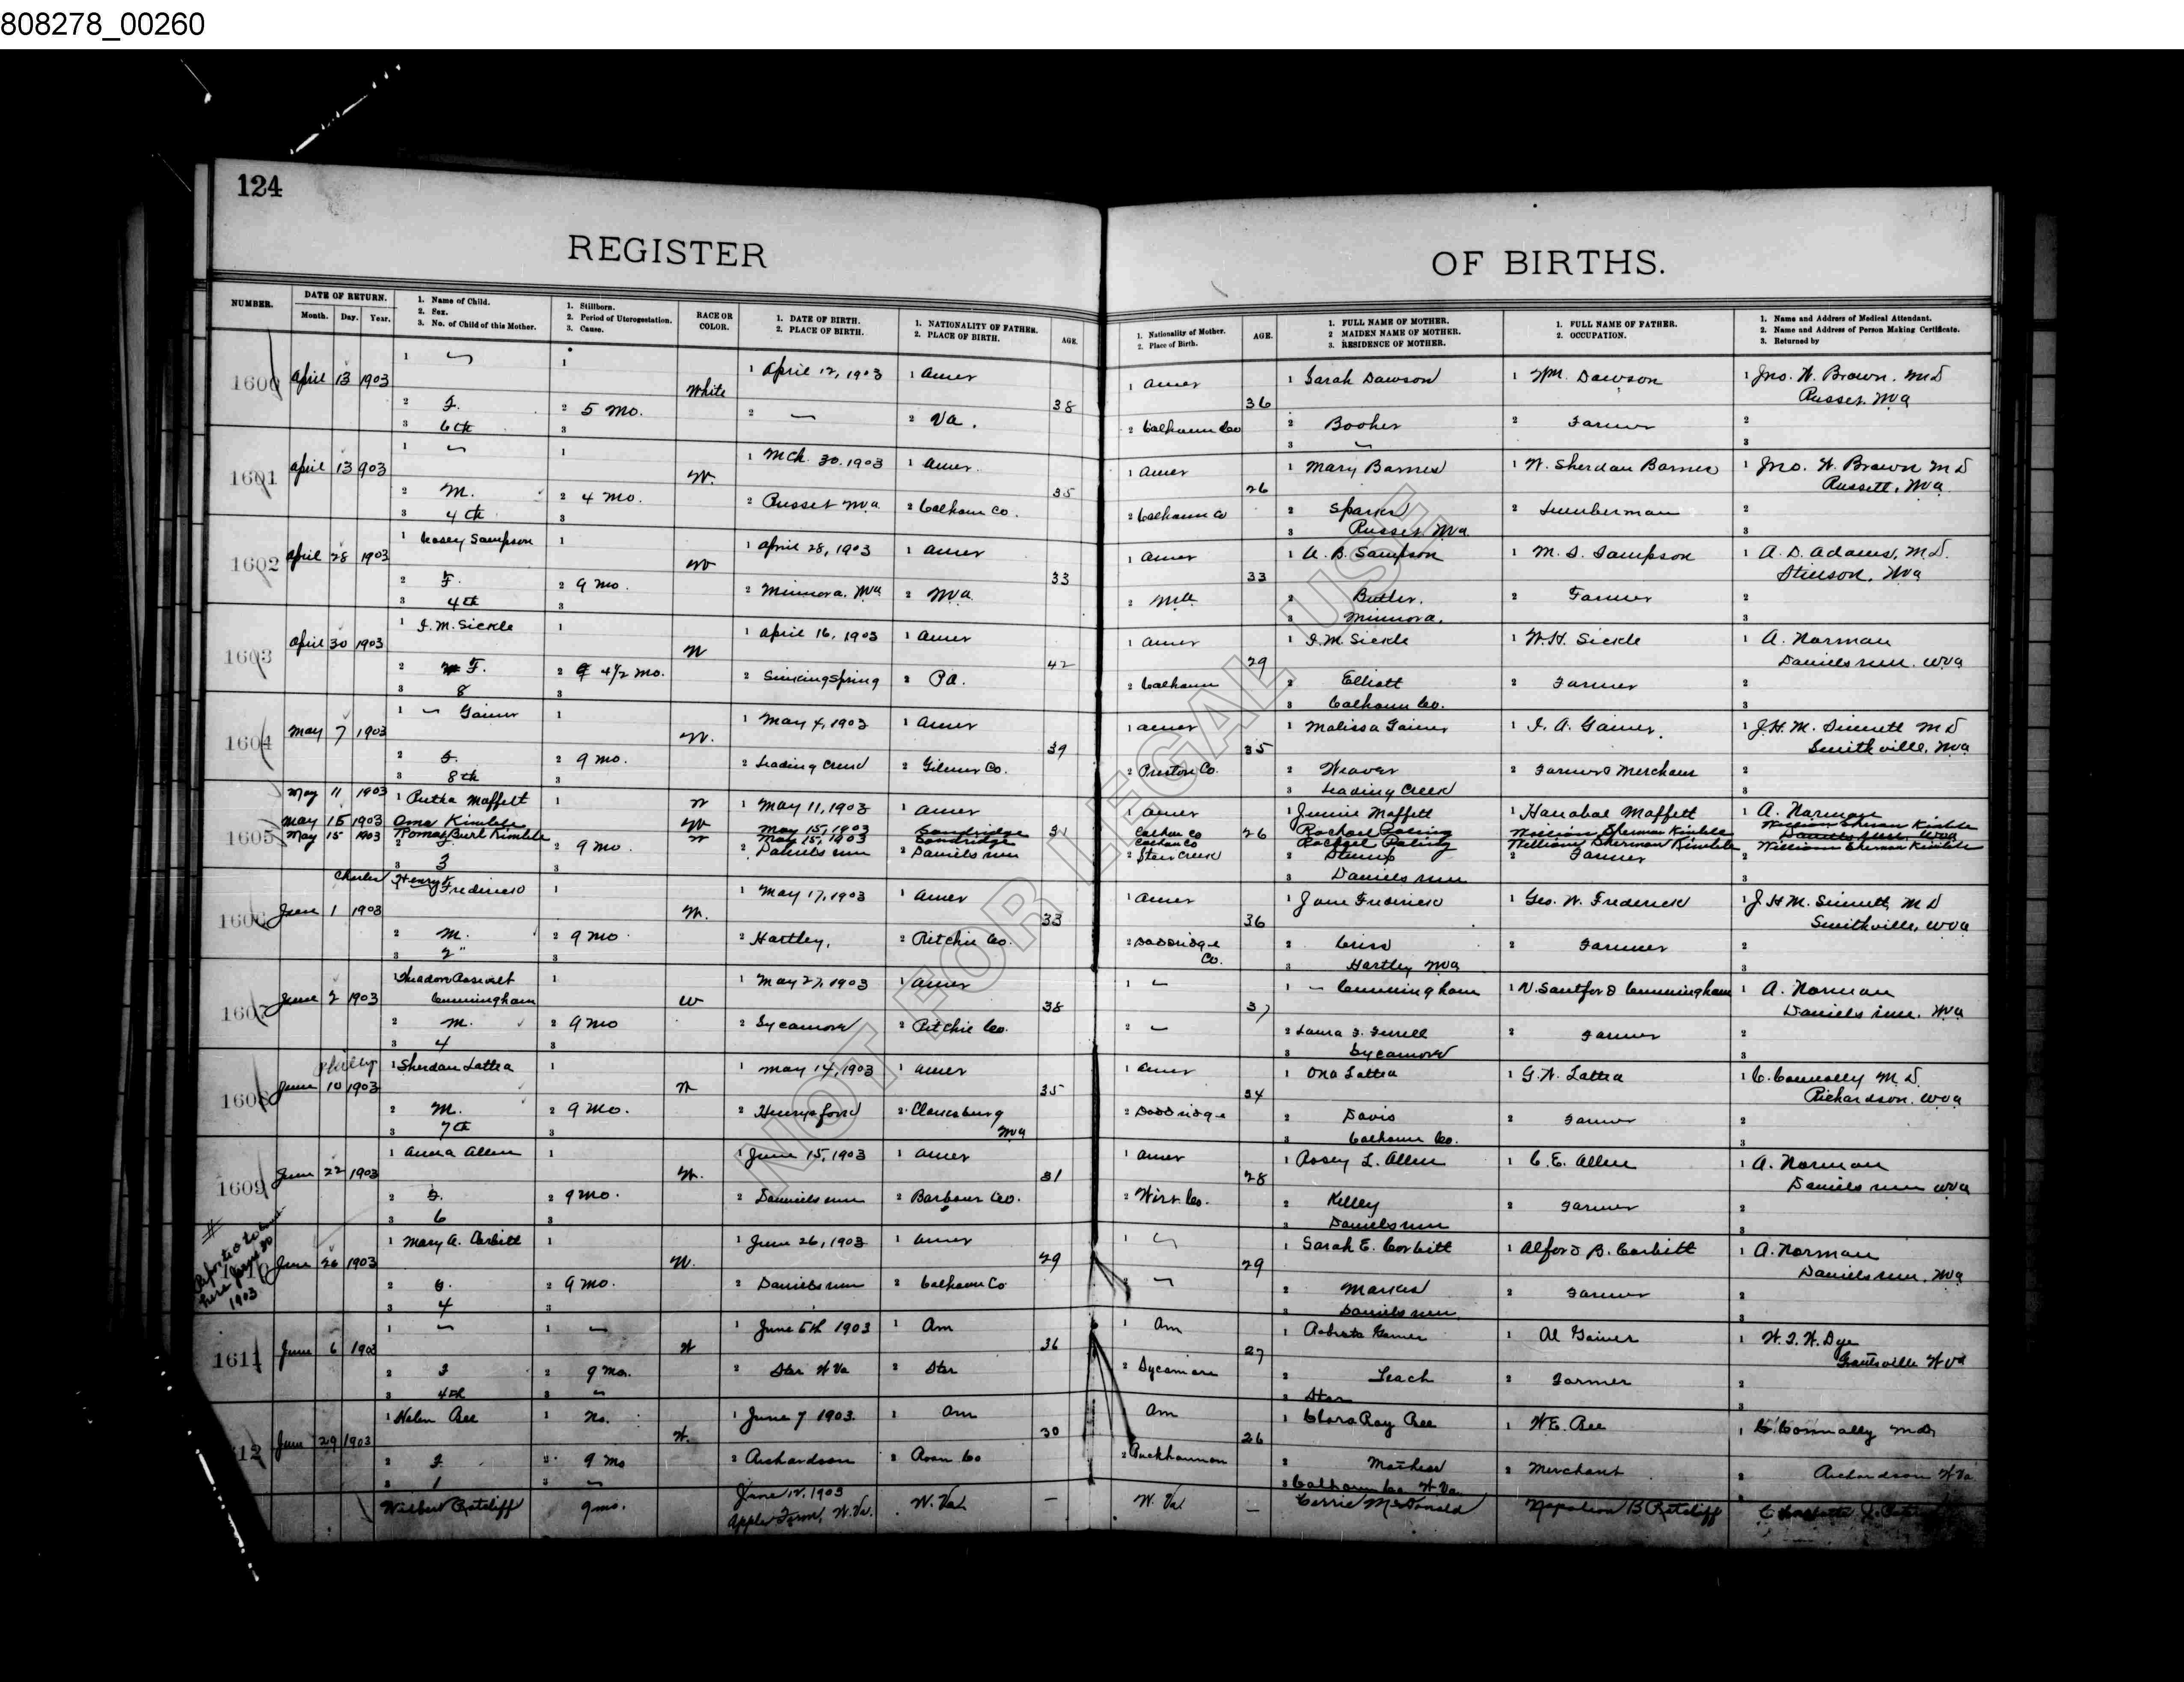 808278_00260
124
REGISTER OF BIRTHS.
NUMBER.
DATE OF RETURN.
Month. Day. Year.
1. Name of Child.
2. Sex.
3. No. of Child of this Mother.
1. Stillborn.
2. Period of Uterogestation.
3. Cause.
RACE OR COLOR.
1. DATE OF BIRTH.
2. PLACE OF BIRTH.
1. NATIONALITY OF FATHER.
2. PLACE OF BIRTH.
AGE.
1. Nationality of Mother.
2. Place of Birth.
AGE.
1. FULL NAME OF MOTHER.
2. MAIDEN NAME OF MOTHER.
3. RESIDENCE OF MOTHER.
1. FULL NAME OF FATHER.
2. OCCUPATION.
1. Name and Address of Medical Attendant.
2. Name and Address of Person Making Certificate.
3. Returned by
1600 April 13 1903 White 1 April 12, 1903 1 Amer 38 1 Amer 36 1 Sarah Dawson 1 Wm. Dawson 1 Jno. W. Brown. MD
2 F. 2 5 Mo. 2 Va. 2 Calhoun Co 2 Booher 2 Farmer
3 6th
1601 April 13 903 W. 1 Mch. 30. 1903 1 Amer. 35 1 Amer 26 1 Mary Barnes 1 W. Sherdan Barnes 1 Jno. W. Brown MD
Russett, Wva
2 M. 2 4 Mo. 2 Russet Wva 2 Calhoun Co. 2 Calhoun Co 2 2 Lumberman
3 4th 3 Russet. Wva
1602 April 28 1903 1 Sampson W 1 April 28, 1903 1 Amer 33 1 Amer 33 1 Sampson 1 Sampson 1 A. D. Adams, MD.
Stinson, Wva
2 F. 2 9 Mo. 2 Minnora. Wva 2 Wva 2 Butler. 2 Farmer
3 4th 3 Minnora.
1603 April 30 1903 1 I. M. Sickle W 1 April 16, 1903 1 Amer 42 1 Amer 29 1 I. M Sickle 1 W. H. Sickle 1 A. Norman
Daniels run. Wva
2 F. 2 4 1/2 Mo. 2 Sinkingspring 2 PA. 2 Calhoun 2 Elliott 2 Farmer
3 8 3 Calhoun Co.
1604 May 7 1903 1 Gainer W. 1 May 4, 1903 1 Amer 39 1 Amer 35 1 Malissa Gainer 1 Gainer. 1 J. H. M. Sinnett MD
Smithville, Wva
2 F. 2 9 Mo. 2 Leading Creek 2 Gilmer Co. 2 Preston Co. 2 Weaver 2 Farmer & Merchant
3 8th 3 Leading Creek
1605 May 11 1903 1 Maffett W 1 May 11, 1903 1 Amer 31 1 Amer 26 1 Jennie Maffett 1 Hanabal Maffett 1 A. Norman
May 15 1903 Oma Kimble W May 15, 1903 Sandridge Calhoun Co Rachael Poling William Sherman Kimble William Sherman Kimble
May 15 1903 Romas Burl Kimble W May 15, 1903 Sandridge Calhoun Co Rachael Poling William Sherman Kimble William Sherman Kimble
2 9 Mo. 2 Daniels run 2 Daniels run 2 Stump 2 Farmer
3 3 3 Daniels run
1606 June 1 1903 Charles Henry Frederick W. 1 May 17, 1903 1 Amer 33 1 Amer 36 1 Jane Frederick 1 Geo. W. Frederick 1 J. H. M. Sinnett, MD
Smithville, Wva
2 M. 2 9 Mo 2 Hartley. 2 Ritchie Co. 2 Doddridge Co. 2 Criss 2 Farmer
3 2" 3 Hartley Wva
1607 June 2 1903 Cunningham W 1 May 27, 1903 1 Amer 38 37 1 Cunningham 1 Cunningham 1 A. Norman
Daniels run. Wva
2 M. 2 9 Mo 2 Sycamore 2 Ritchie Co. 2 Laura F. Ferrell 2 Farmer
3 4 3 Sycamore
1608 June 10 1903 Philip 1 Sherdan Lattea W 1 May 14, 1903 1 Amer 35 1 Amer 34 1 Ona Lattea 1 G. W. Lattea 1 C. Connolly M. D.
Richardson. Wva
2 M. 2 9 Mo. 2 2 Clarksburg Wva 2 Doddridge 2 Davis 2 Farmer
3 7th 3 Calhoun Co.
1609 June 22 1903 1 Anna Allen W. 1 June 15, 1903 1 Amer 31 1 Amer 28 1 Rosey L. Allen 1 C. E. Allen 1 A. Norman
Daniels run Wva
2 F. 2 9 Mo. 2 Daniels run 2 Barbour Co. 2 Wirt Co. 2 Kelley 2 Farmer
3 6 3 Daniels run
June 26 1903 1 Mary A. Corbitt W. 1 June 26, 1903 1 Amer 29 29 1 Sarah E. Corbitt 1 Alford B. Corbitt 1 A. Norman
Daniels run, Wva
2 F. 2 9 Mo. 2 Daniels run 2 Calhoun Co 2 2 Farmer
3 4 3 Daniels run
1611 June 6 1903 W 1 June 5th 1903 1 Am 36 1 Am 27 1 Roberta Gainer 1 Al Gainer 1 W. T. W. Dye
Grantsville W Va
2 F 2 9 Mo. 2 Star W Va 2 Star 2 Sycamore 2 Leach 2 Farmer
3 4th 3 Star
1612 June 29 1903 1 Helen Bee 1 No. W. 1 June 7 1903. 1 Am 30 Am 26 1 Clora Ray Bee 1 W. E. Bee 1 C. Connally MD
2 F. 2 9 Mo 2 Richardson 2 Roan Co 2 Buckhannon 2 2 Merchant 2 Richardson W Va
3 1 3 Calhoun Co W. Va
Wilbur Ratcliff 9 mo. June 12, 1903 W. Va W. Va Carrie McDonald Napoleon B Ratcliff
Apple Farm, W. Va.
NOT FOR LEGAL USE